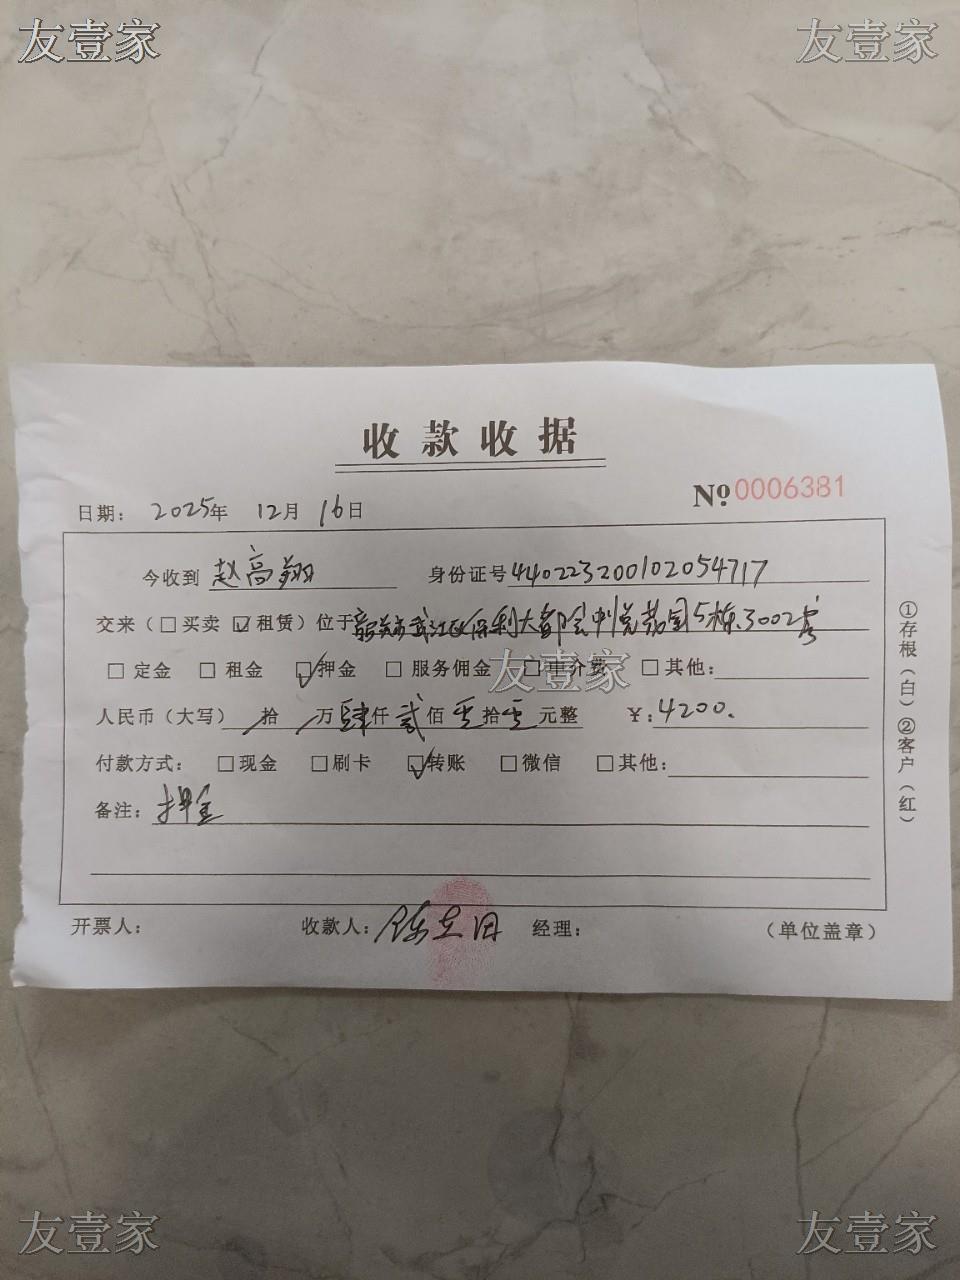 友壹家 友壹家
收款收据
日期: 2025年 12月 16日 № 0006381
今收到 赵高翔 身份证号 440223200102054717
交来(□买卖 ☑租赁)位于 韶关市武江区保利大都会中悦荔园5栋3002房
□定金 □租金 ☑押金 □服务佣金 □中介费 □其他:
友壹家
人民币(大写) / 拾 / 万 肆 仟 贰 佰 零 拾 零 元整 ¥:4200.
付款方式: □现金 □刷卡 ☑转账 □微信 □其他:
备注: 押金
开票人: 收款人: 经理: (单位盖章)
①存根(白)②客户(红)
友壹家 友壹家